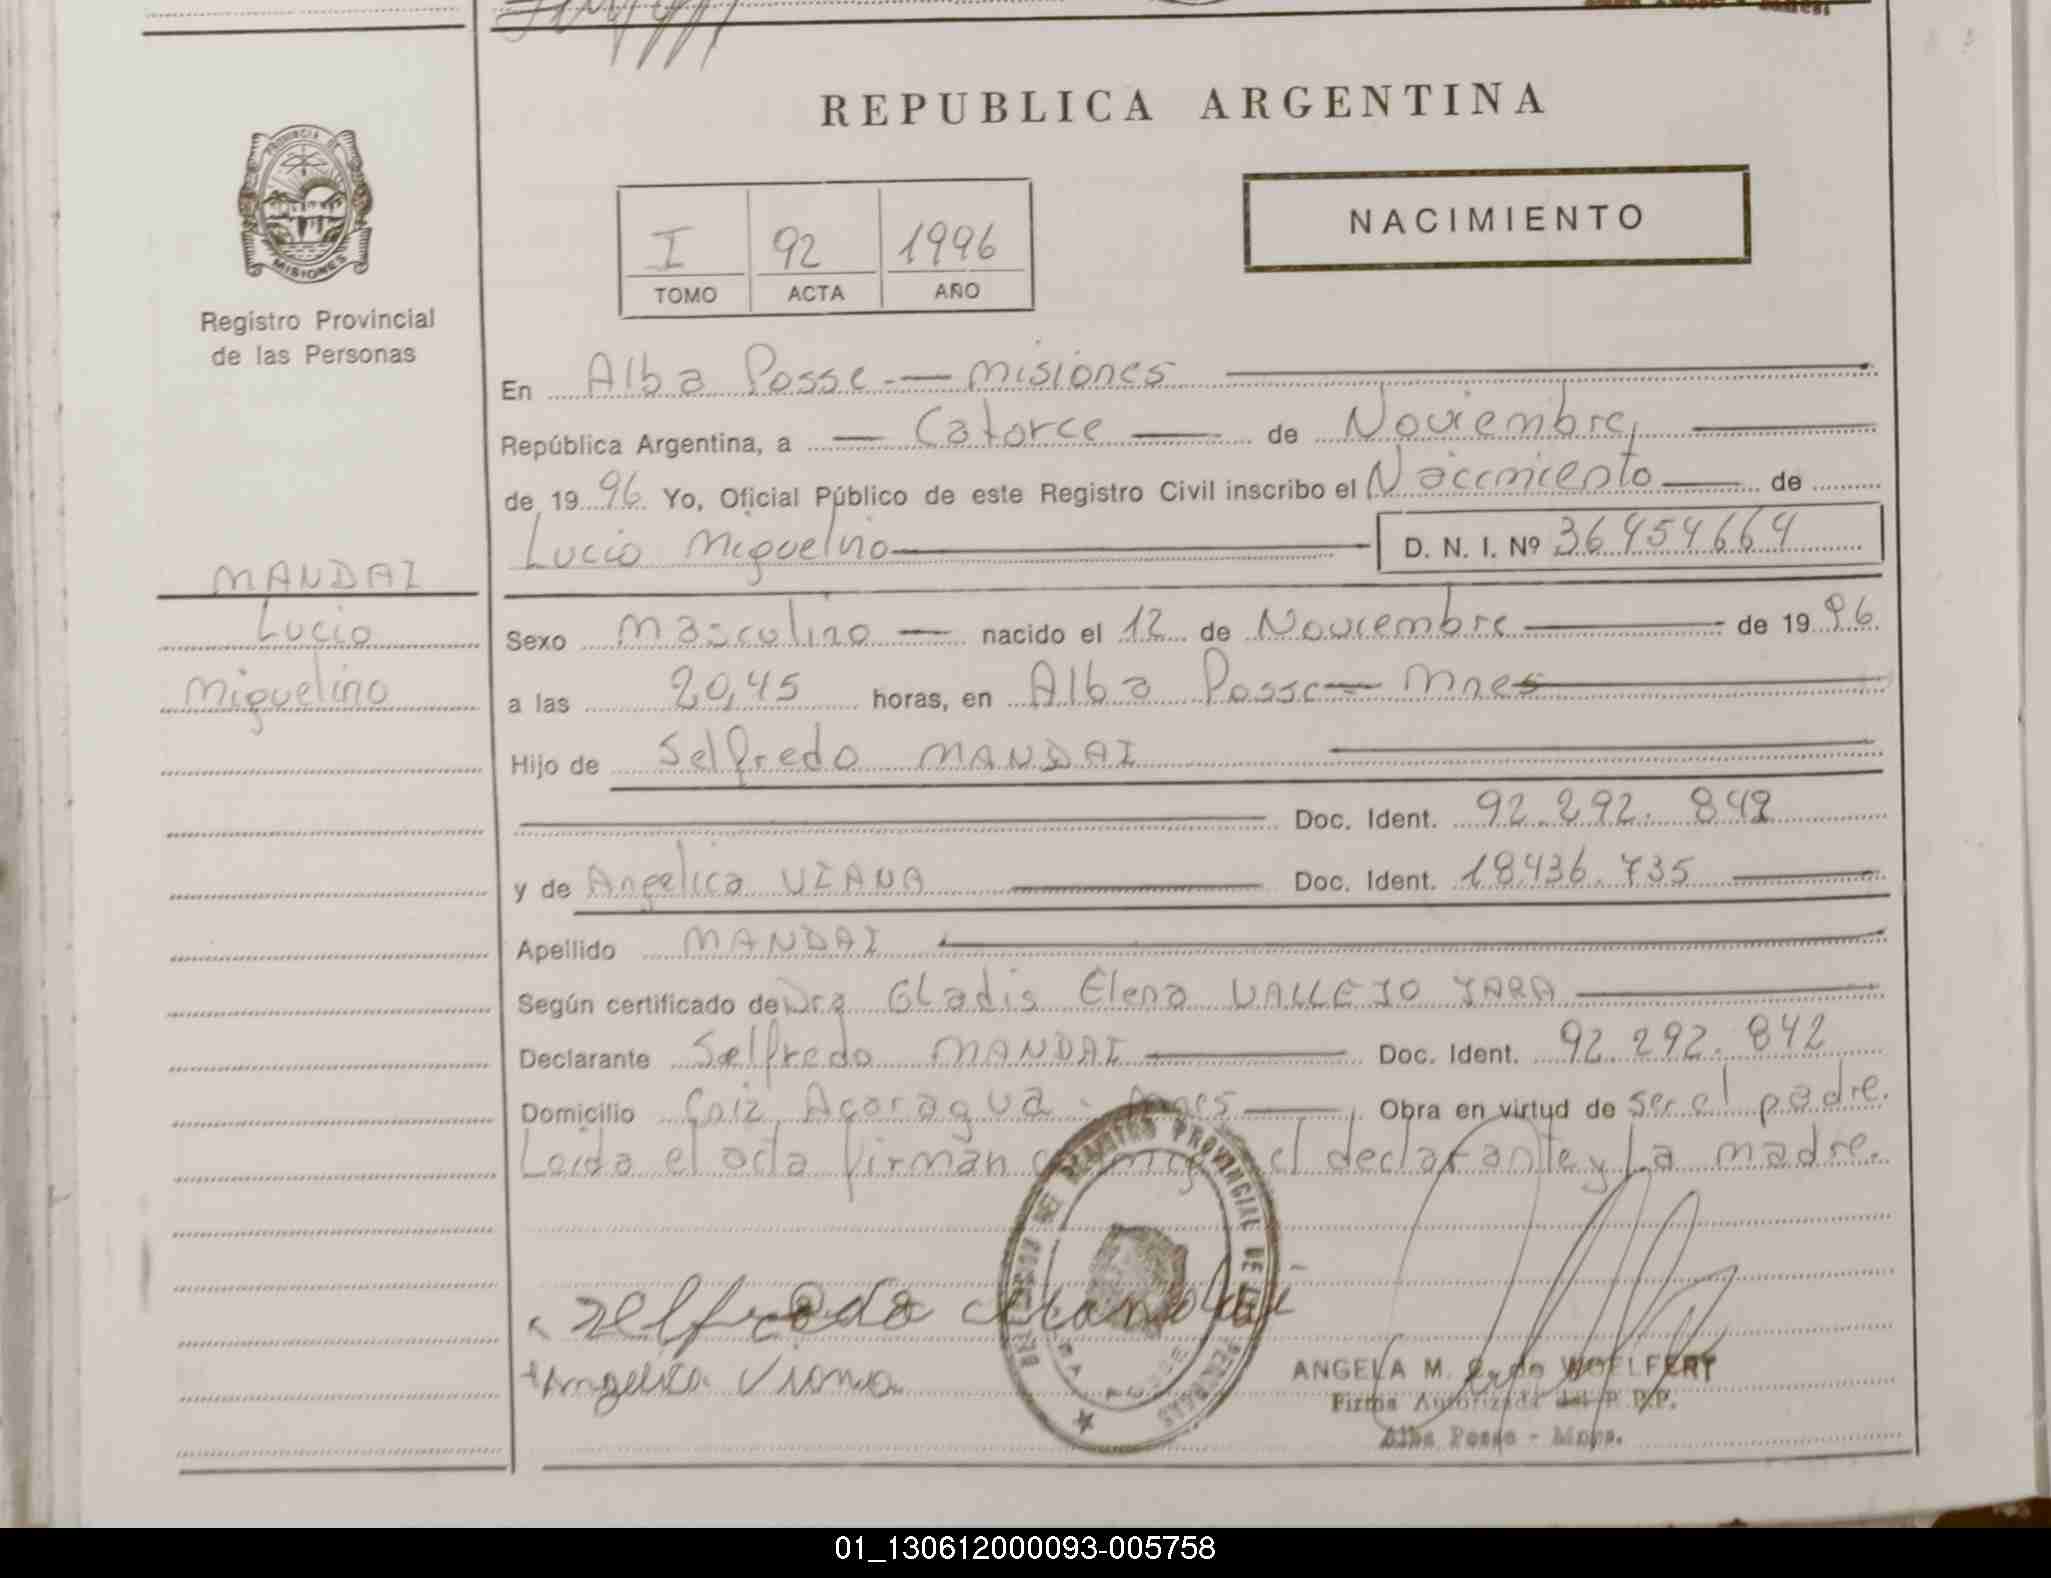 REPUBLICA ARGENTINA
PROVINCIA DE
MISIONES
Registro Provincial
de las Personas
I 92 1996
TOMO ACTA AÑO
NACIMIENTO
En Alba Posse — Misiones
República Argentina, a — Catorce — de Noviembre,
de 1996 Yo, Oficial Público de este Registro Civil inscribo el Nacimiento — de
Lucio Miguelino — D. N. I. Nº 36454664
MANDAI
Lucio
Miguelino
Sexo Masculino — nacido el 12 de Noviembre — de 1996
a las 20,45 horas, en Alba Posse — Mnes
Hijo de Selfredo MANDAI
Doc. Ident. 92.292.842
y de Angelica VIANA — Doc. Ident. 18436.735
Apellido MANDAI
Según certificado de Dra Gladis Elena VALLEJO JARA
Declarante Selfredo MANDAI — Doc. Ident. 92.292.842
Domicilio Acaragua - Mnes — Obra en virtud de ser el padre.
Leida el acta firman el declarante y La madre.
REGISTRO PROVINCIAL DE
Selfredo Mandai
Angelica Viana
ANGELA M. de WOELFERT
Firma Autorizada del R.P.P.
Alba Posse - Mnes.
01_130612000093-005758